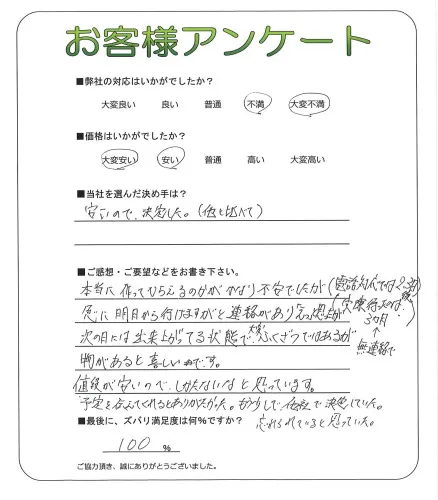 お客様アンケート
■弊社の対応はいかがでしたか？
大変良い 良い 普通 不満 大変不満
■価格はいかがでしたか？
大変安い 安い 普通 高い 大変高い
■当社を選んだ決め手は？
安いので、決定した。（他と比べて）
■ご感想・ご要望などをお書き下さい。
本当に作ってもらえるのかがかなり不安でしたが（電話対応では2~3週
急に明日から行けますがと連絡があり
実際待ったのは、
3カ月
↑
無連絡で
次の日には出来上がってる状態で、ふくざつではあるが
物があると喜しいのです。
値段が安いので、しかたないなと思っています。
予定を伝えてくれるとありがたかった。もう少しで他社で決定していた。
忘れられていると思っていた。
■最後に、ズバリ満足度は何％ですか？
100 %
ご協力頂き、誠にありがとうございました。